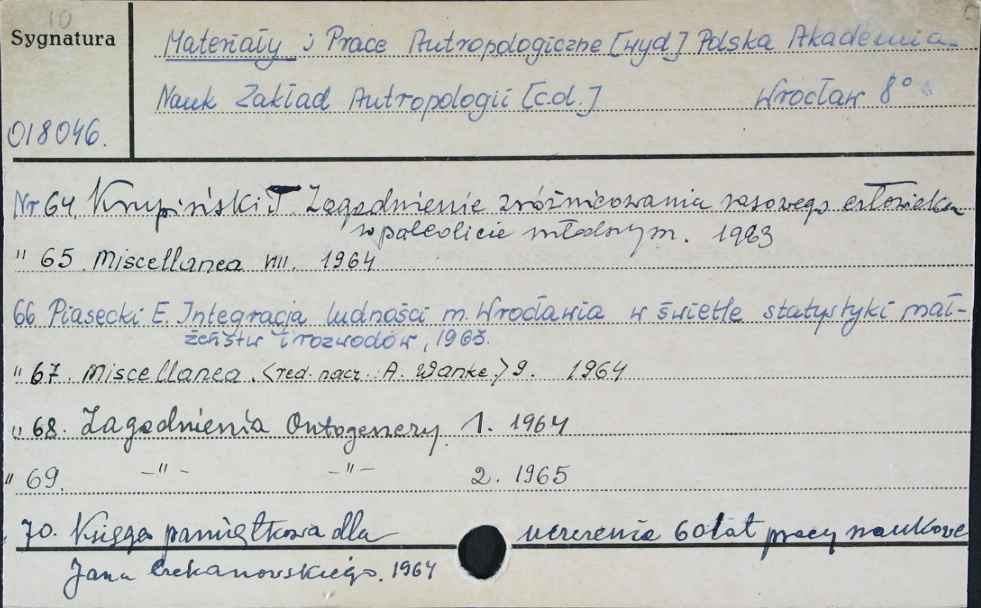 10
Sygnatura
Materiały i Prace Antropologiczne [wyd] Polska Akademia
Nauk Zakład Antropologii [c.d.] Wrocław 8°
018046.
Nr 64 Krupiński T Zagadnienie zróżnicowania rasowego człowieka
w paleolicie młodszym. 1963
" 65. Miscellanea VIII. 1964
66 Piasecki E. Integracja ludności m. Wrocławia w świetle statystyki mał-
żeństw i rozwodów, 1963.
" 67. Miscellanea. <red. nacz.: A. Wanke.> 9. 1964
" 68. Zagadnienia Ontogenezy. 1. 1964
" 69. -"- -"- 2. 1965
" 70. Księga pamiątkowa dla uczczenia 60 lat pracy naukowe
Jana Czekanowskiego. 1964